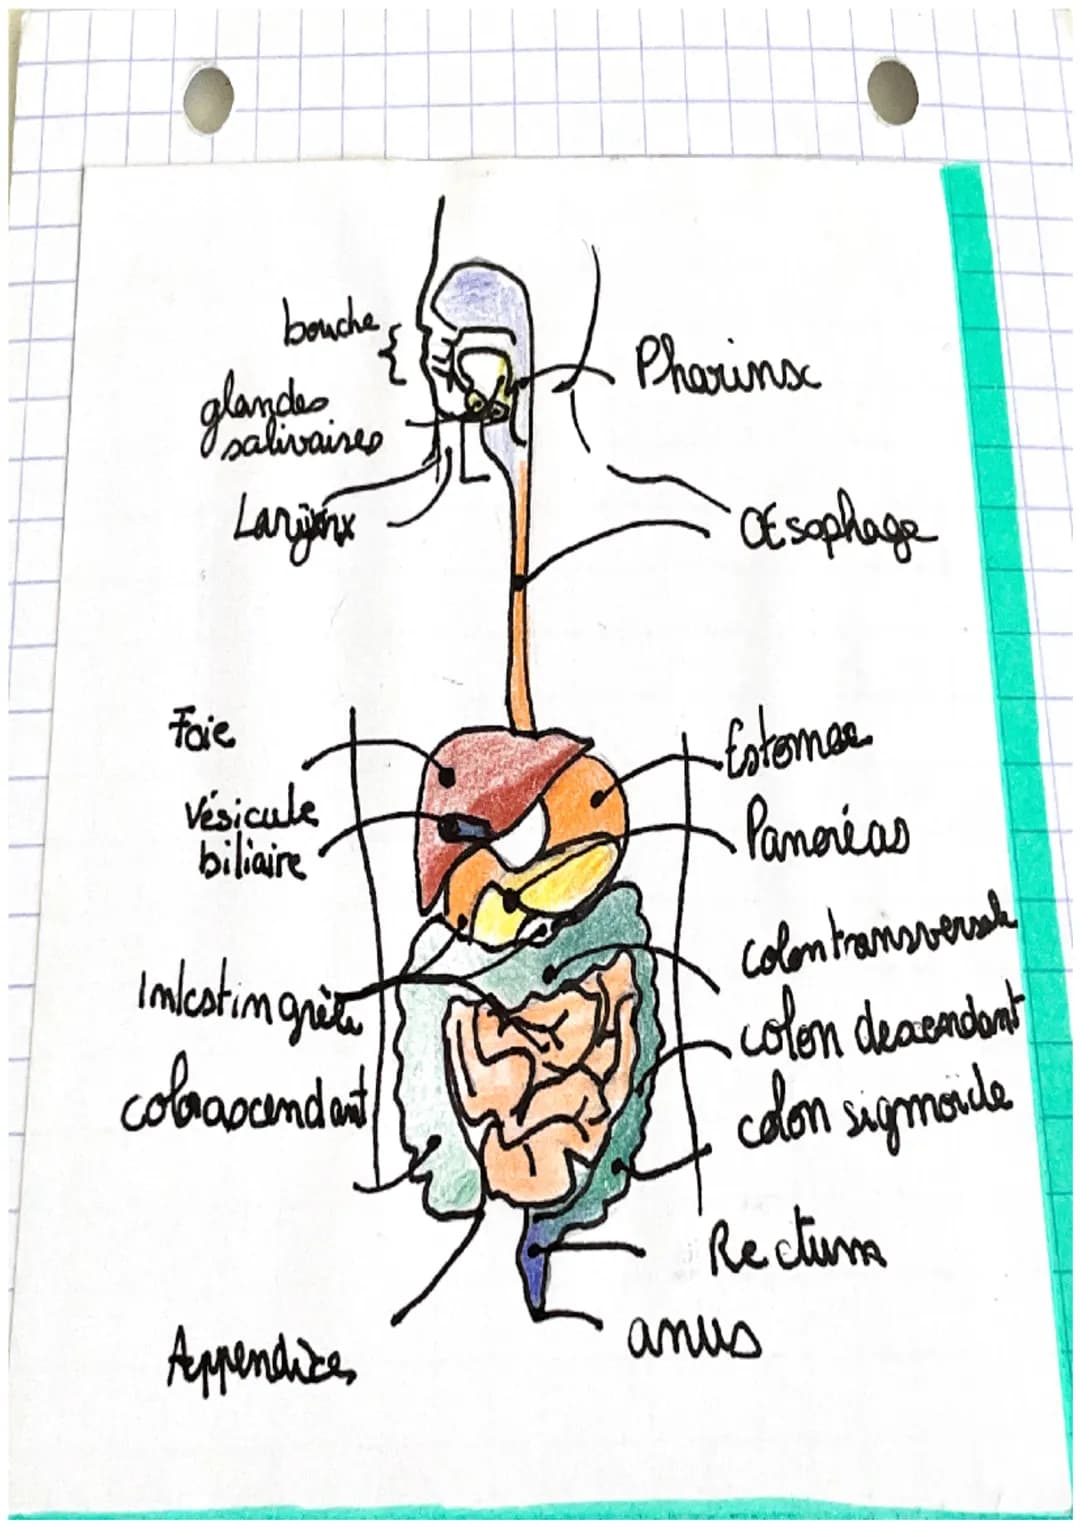 bouche
Pharinx
glandes
salivaires
Larynx
Œsophage
Foie
Estomac
Vésicule
biliaire
Pancréas
colon transversale
Intestin grêle
colon descendant
colon ascendant
colon sigmoïde
Rectum
anus
Appendice